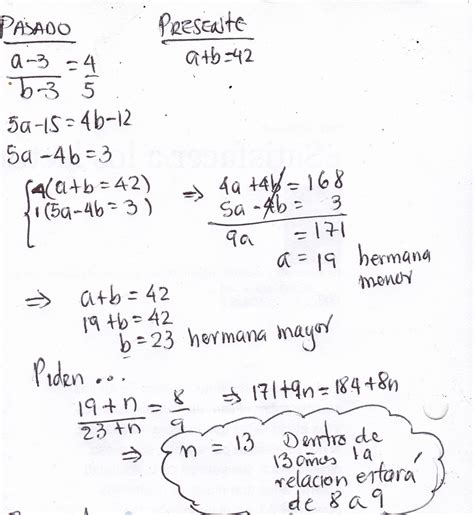 PASADO PRESENTE
a-3/b-3 = 4/5 a+b=42
5a-15=4b-12
5a-4b=3
{4(a+b=42) ⇒ 4a+4b=168
1(5a-4b=3) 5a-4b= 3
9a =171
a = 19 hermana menor
⇒ a+b=42
19+b=42
b=23 hermana mayor
Piden...
19+n/23+n = 8/9 ⇒ 171+9n=184+8n
⇒ n = 13 Dentro de
13 años la
relacion estará
de 8 a 9